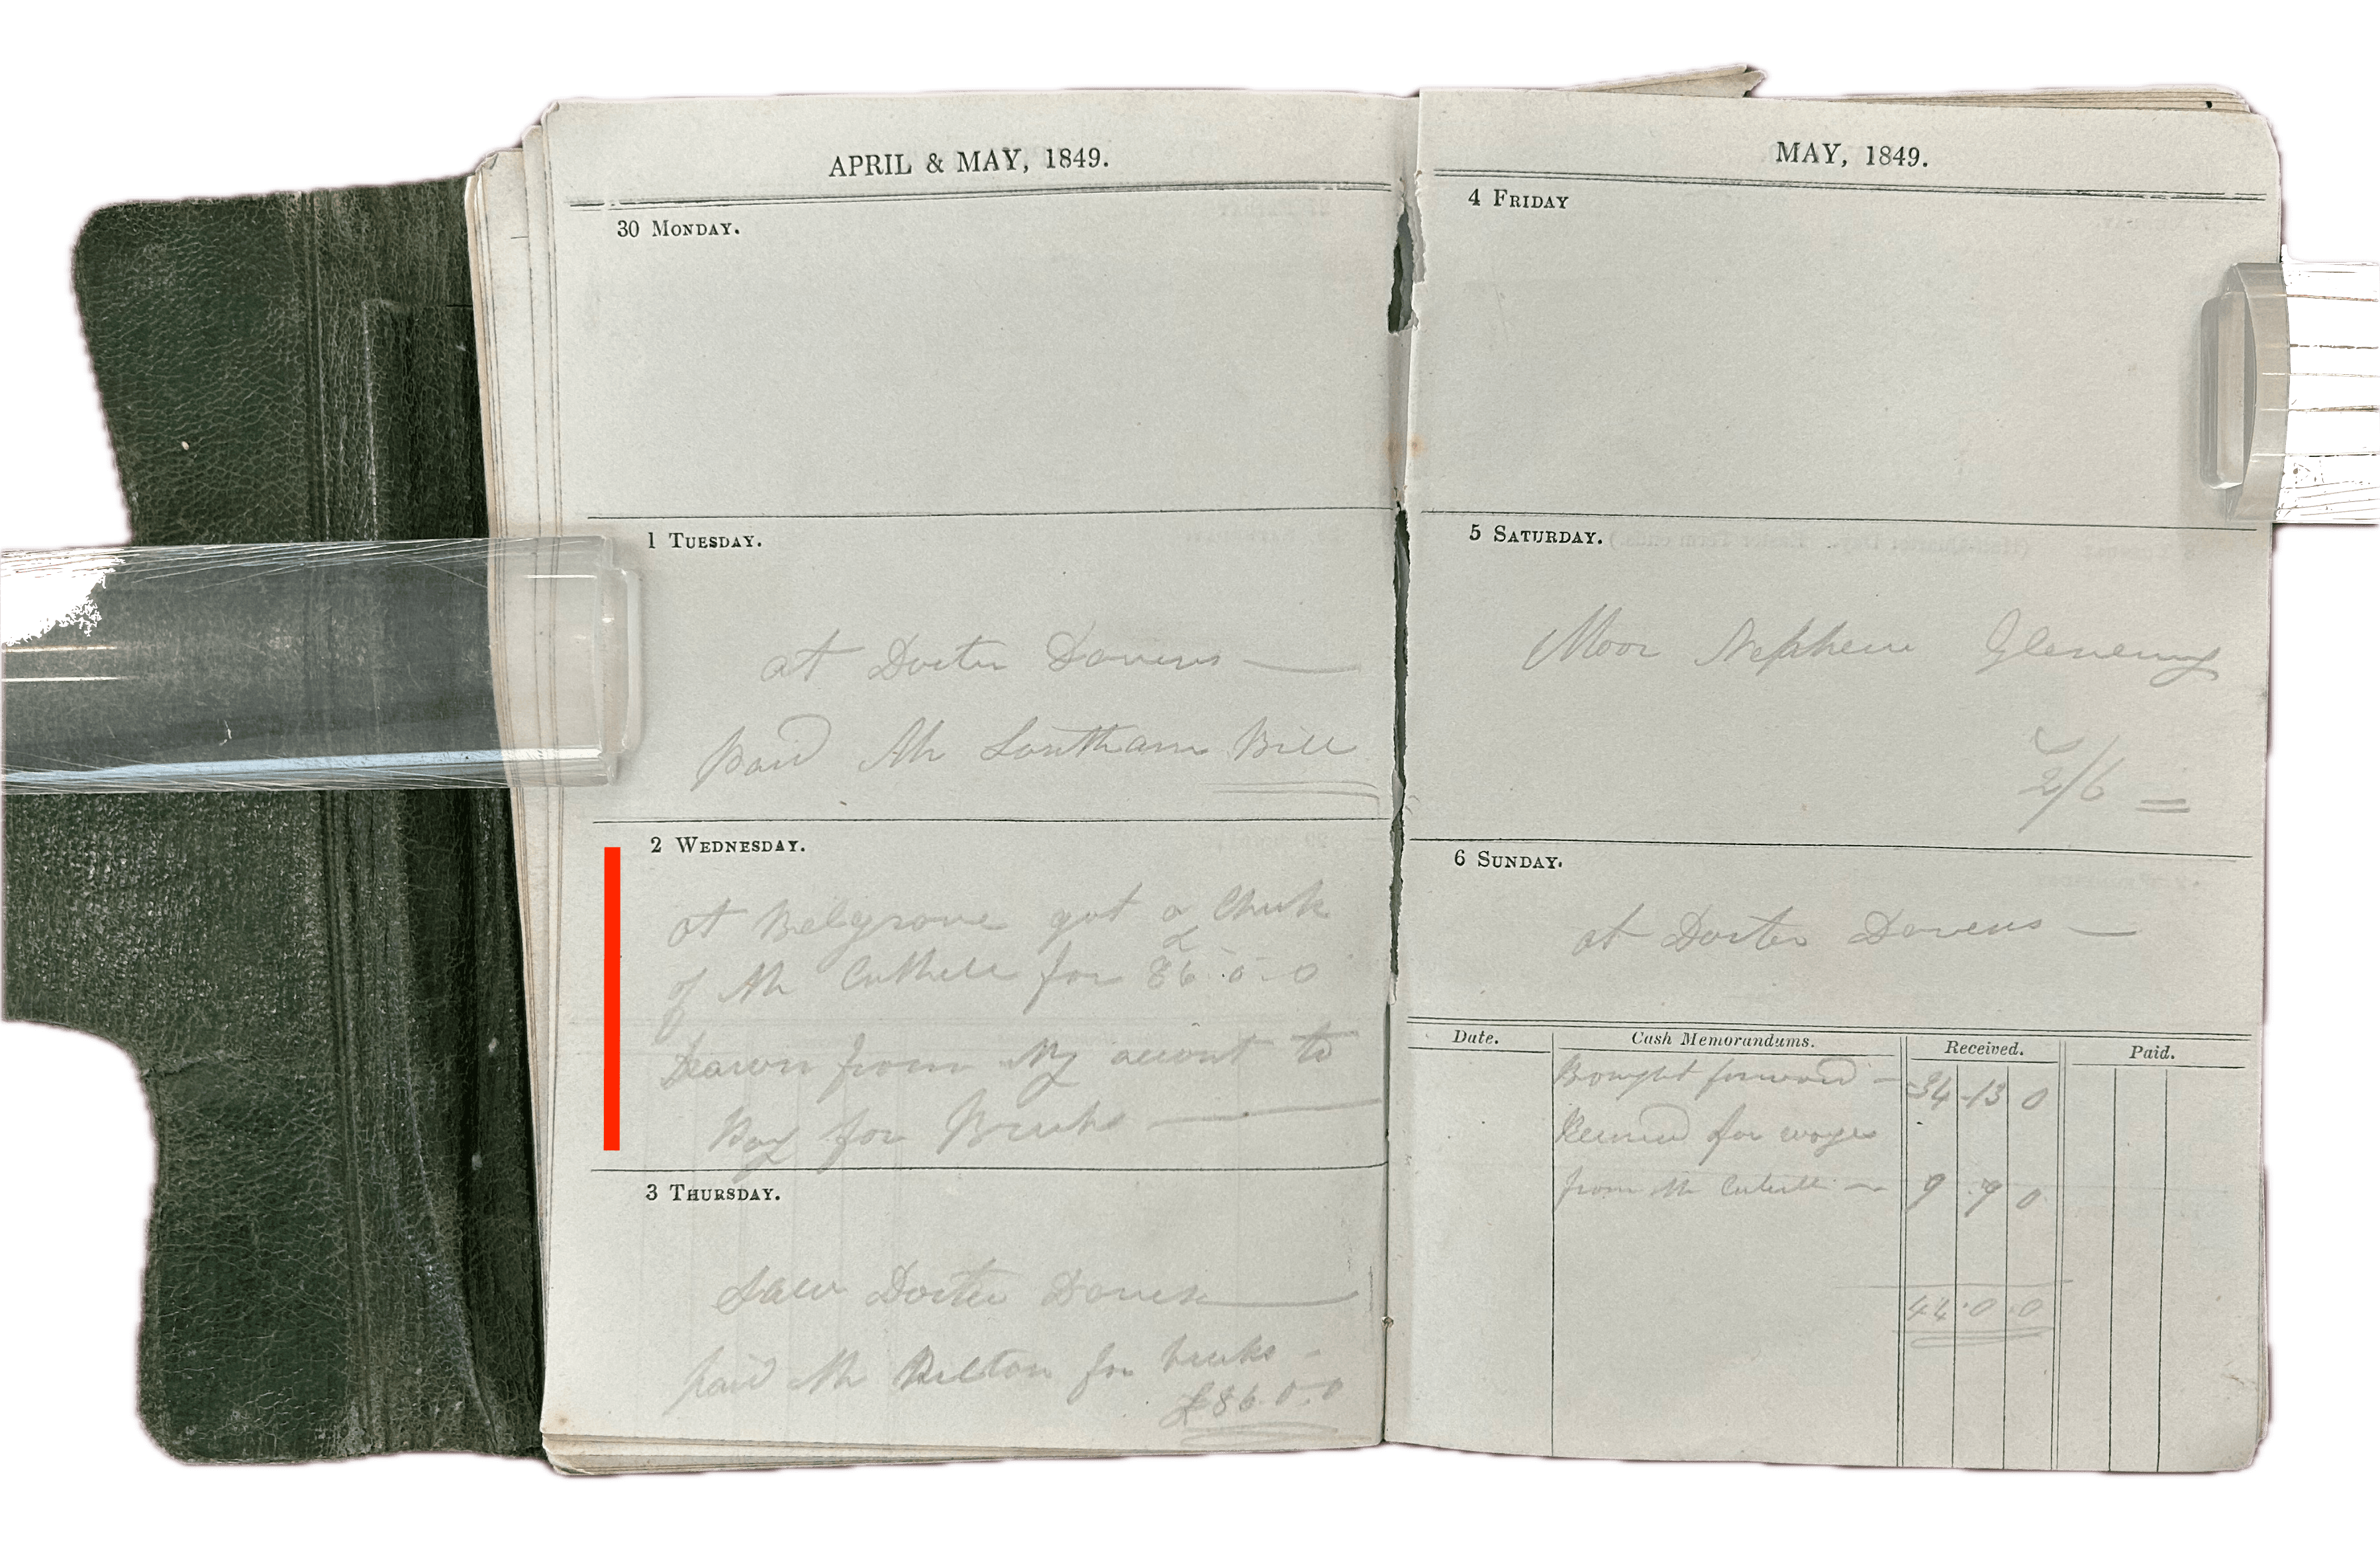 APRIL & MAY, 1849.
30 MONDAY.
1 TUESDAY.
at Docter Davens —
paid Mr Southam Bill
2 WEDNESDAY.
at Belgrove got a Chek
of Mr Cuthell for £86-0-0
Drawn from My account to
Pay for Bricks —
3 THURSDAY.
Saw Docter Davens —
paid Mr Pilton for bricks -
£86.0.0
MAY, 1849.
4 FRIDAY
5 SATURDAY.
Moor Nephew
2/6 =
6 SUNDAY.
at Docter Davens —
Date. Cash Memorandums. Received. Paid.
Bought forward — 34-13 0
for wages
from Mr — 9 . 9 0
44.0.0